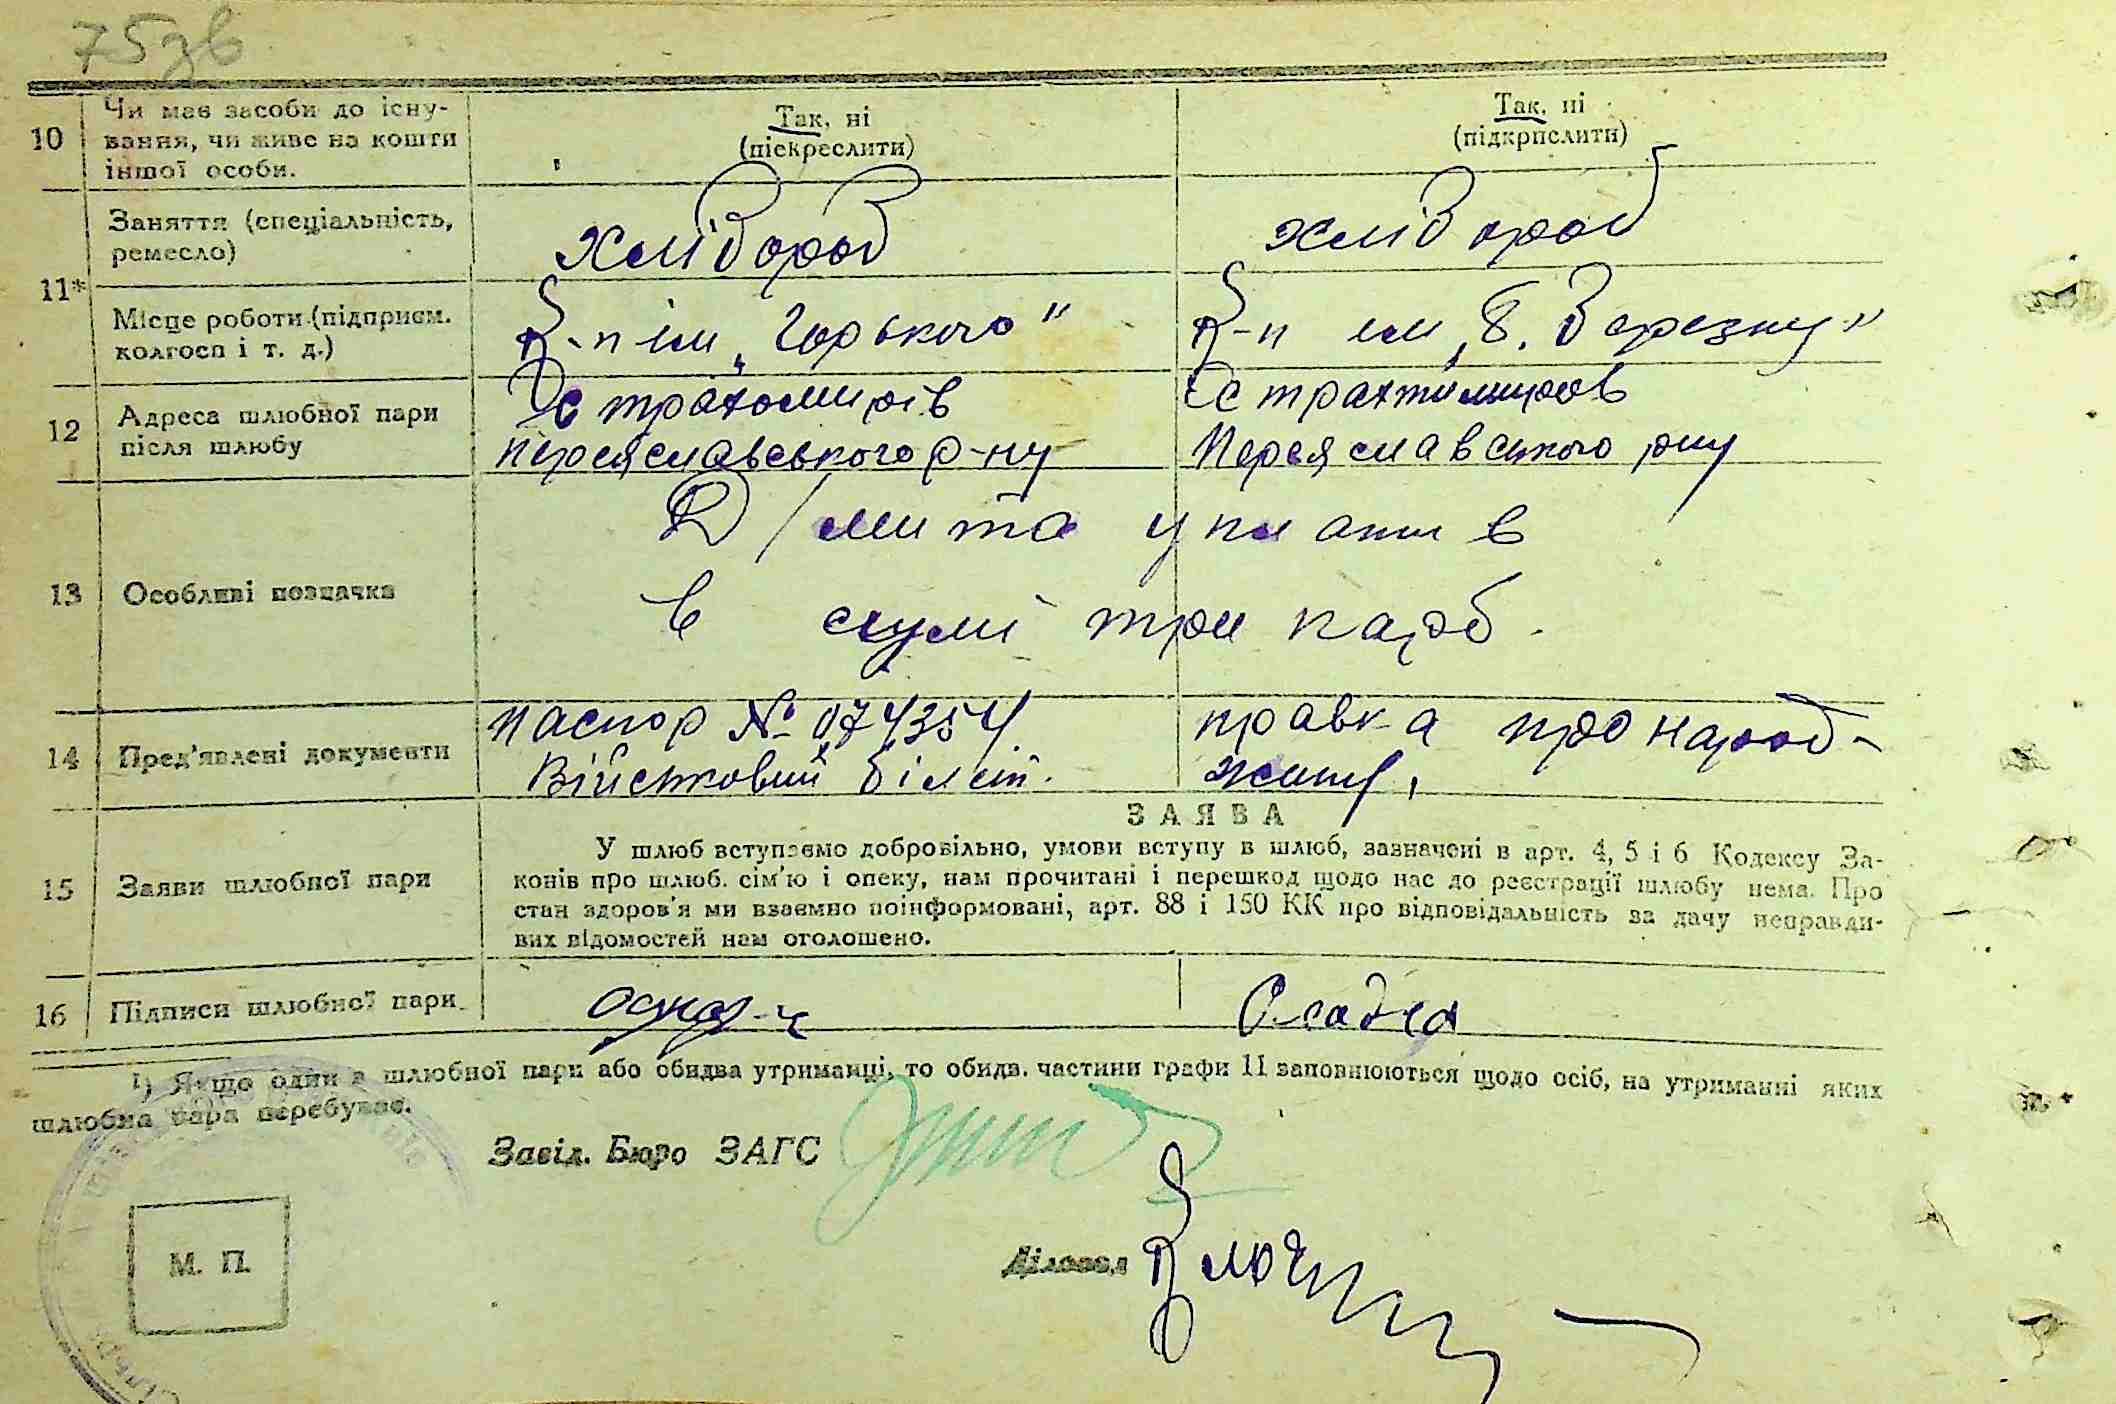 75зв
10 Чи має засоби до існу-
вання, чи живе на кошти
іншої особи.
Так, ні
(піекреслити)
Так, ні
(підкрпслити)
11*
Заняття (спеціальність,
ремесло)
хлібороб
хлібороб
Місце роботи (підприєм.
колгосп і т. д.)
к-п ім „Горького"
к-п ім „8. Березну"
12 Адреса шлюбної пари
після шлюбу
с трахтомирів
переяславського р-ну
с трахтимиров
Переяславського рну
13 Особливі позначка
Д/мита уплатив
в сумі три карб.
14 Пред'явлені документи
паспор № 074354.
Військовий білет.
правка про народ-
жину,
15 Заяви шлюбної пари
ЗАЯВА
У шлюб вступаємо добровільно, умови вступу в шлюб, зазначені в арт. 4, 5 і 6 Кодексу За-
конів про шлюб. сім'ю і опеку, нам прочитані і перешкод щодо нас до реєстрації шлюбу нема. Про
стан здоров'я ми взаємно поінформовані, арт. 88 і 150 КК про відповідальність за дачу неправди-
вих відомостей нам оголошено.
16 Підписи шлюбної пари
1) Якщо один з шлюбної пари або обидва утриманці, то обидв. частини графи 11 заповнюються щодо осіб, на утриманні яких
шлюбна пара перебуває.
Завід. Бюро ЗАГС
Діловод
М. П.